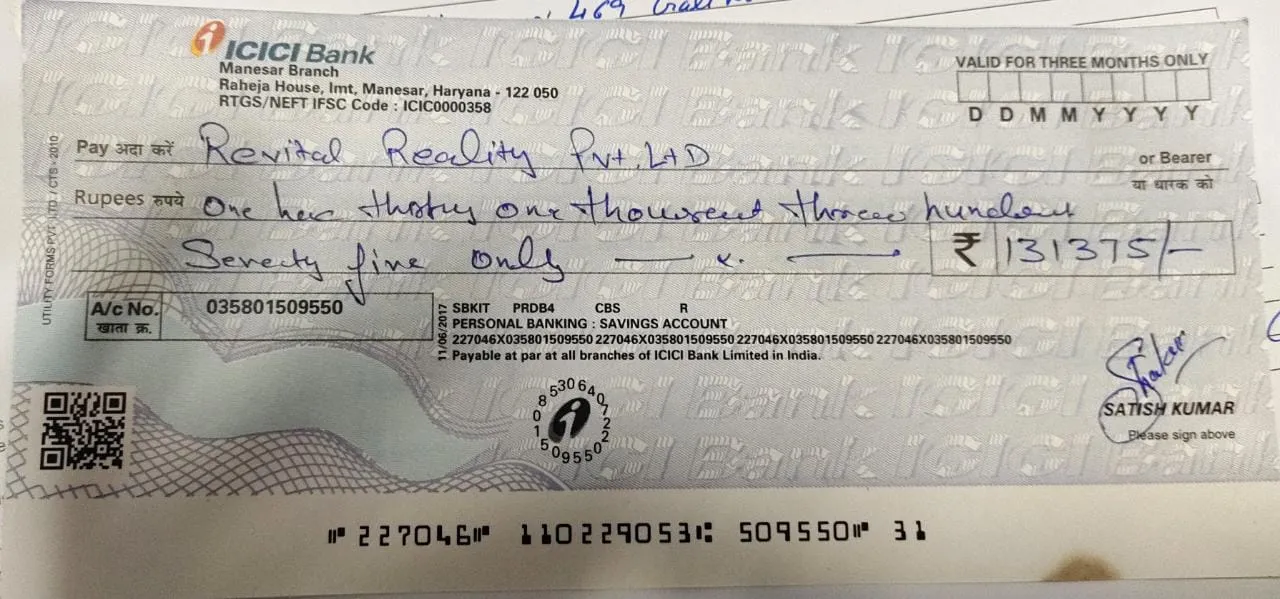 469
ICICI Bank
Manesar Branch
Raheja House, Imt, Manesar, Haryana - 122 050
RTGS/NEFT IFSC Code : ICIC0000358
VALID FOR THREE MONTHS ONLY
D D M M Y Y Y Y
Pay अदा करें Revital Reality Pvt. LTD
or Bearer
या धारक को
Rupees रुपये One lac thirty one thousand three hundred
Seventy five only
₹ 131375/-
A/c No. 035801509550
खाता क्र.
SBKIT PRDB4 CBS R
PERSONAL BANKING : SAVINGS ACCOUNT
227046X035801509550 227046X035801509550 227046X035801509550
Payable at par at all branches of ICICI Bank Limited in India.
11/06/2017
UTILITY FORMS PVT. LTD. / CTS - 2010
SATISH KUMAR
Please sign above
⑈227046⑈ 110229053⑆ 509550⑈ 31